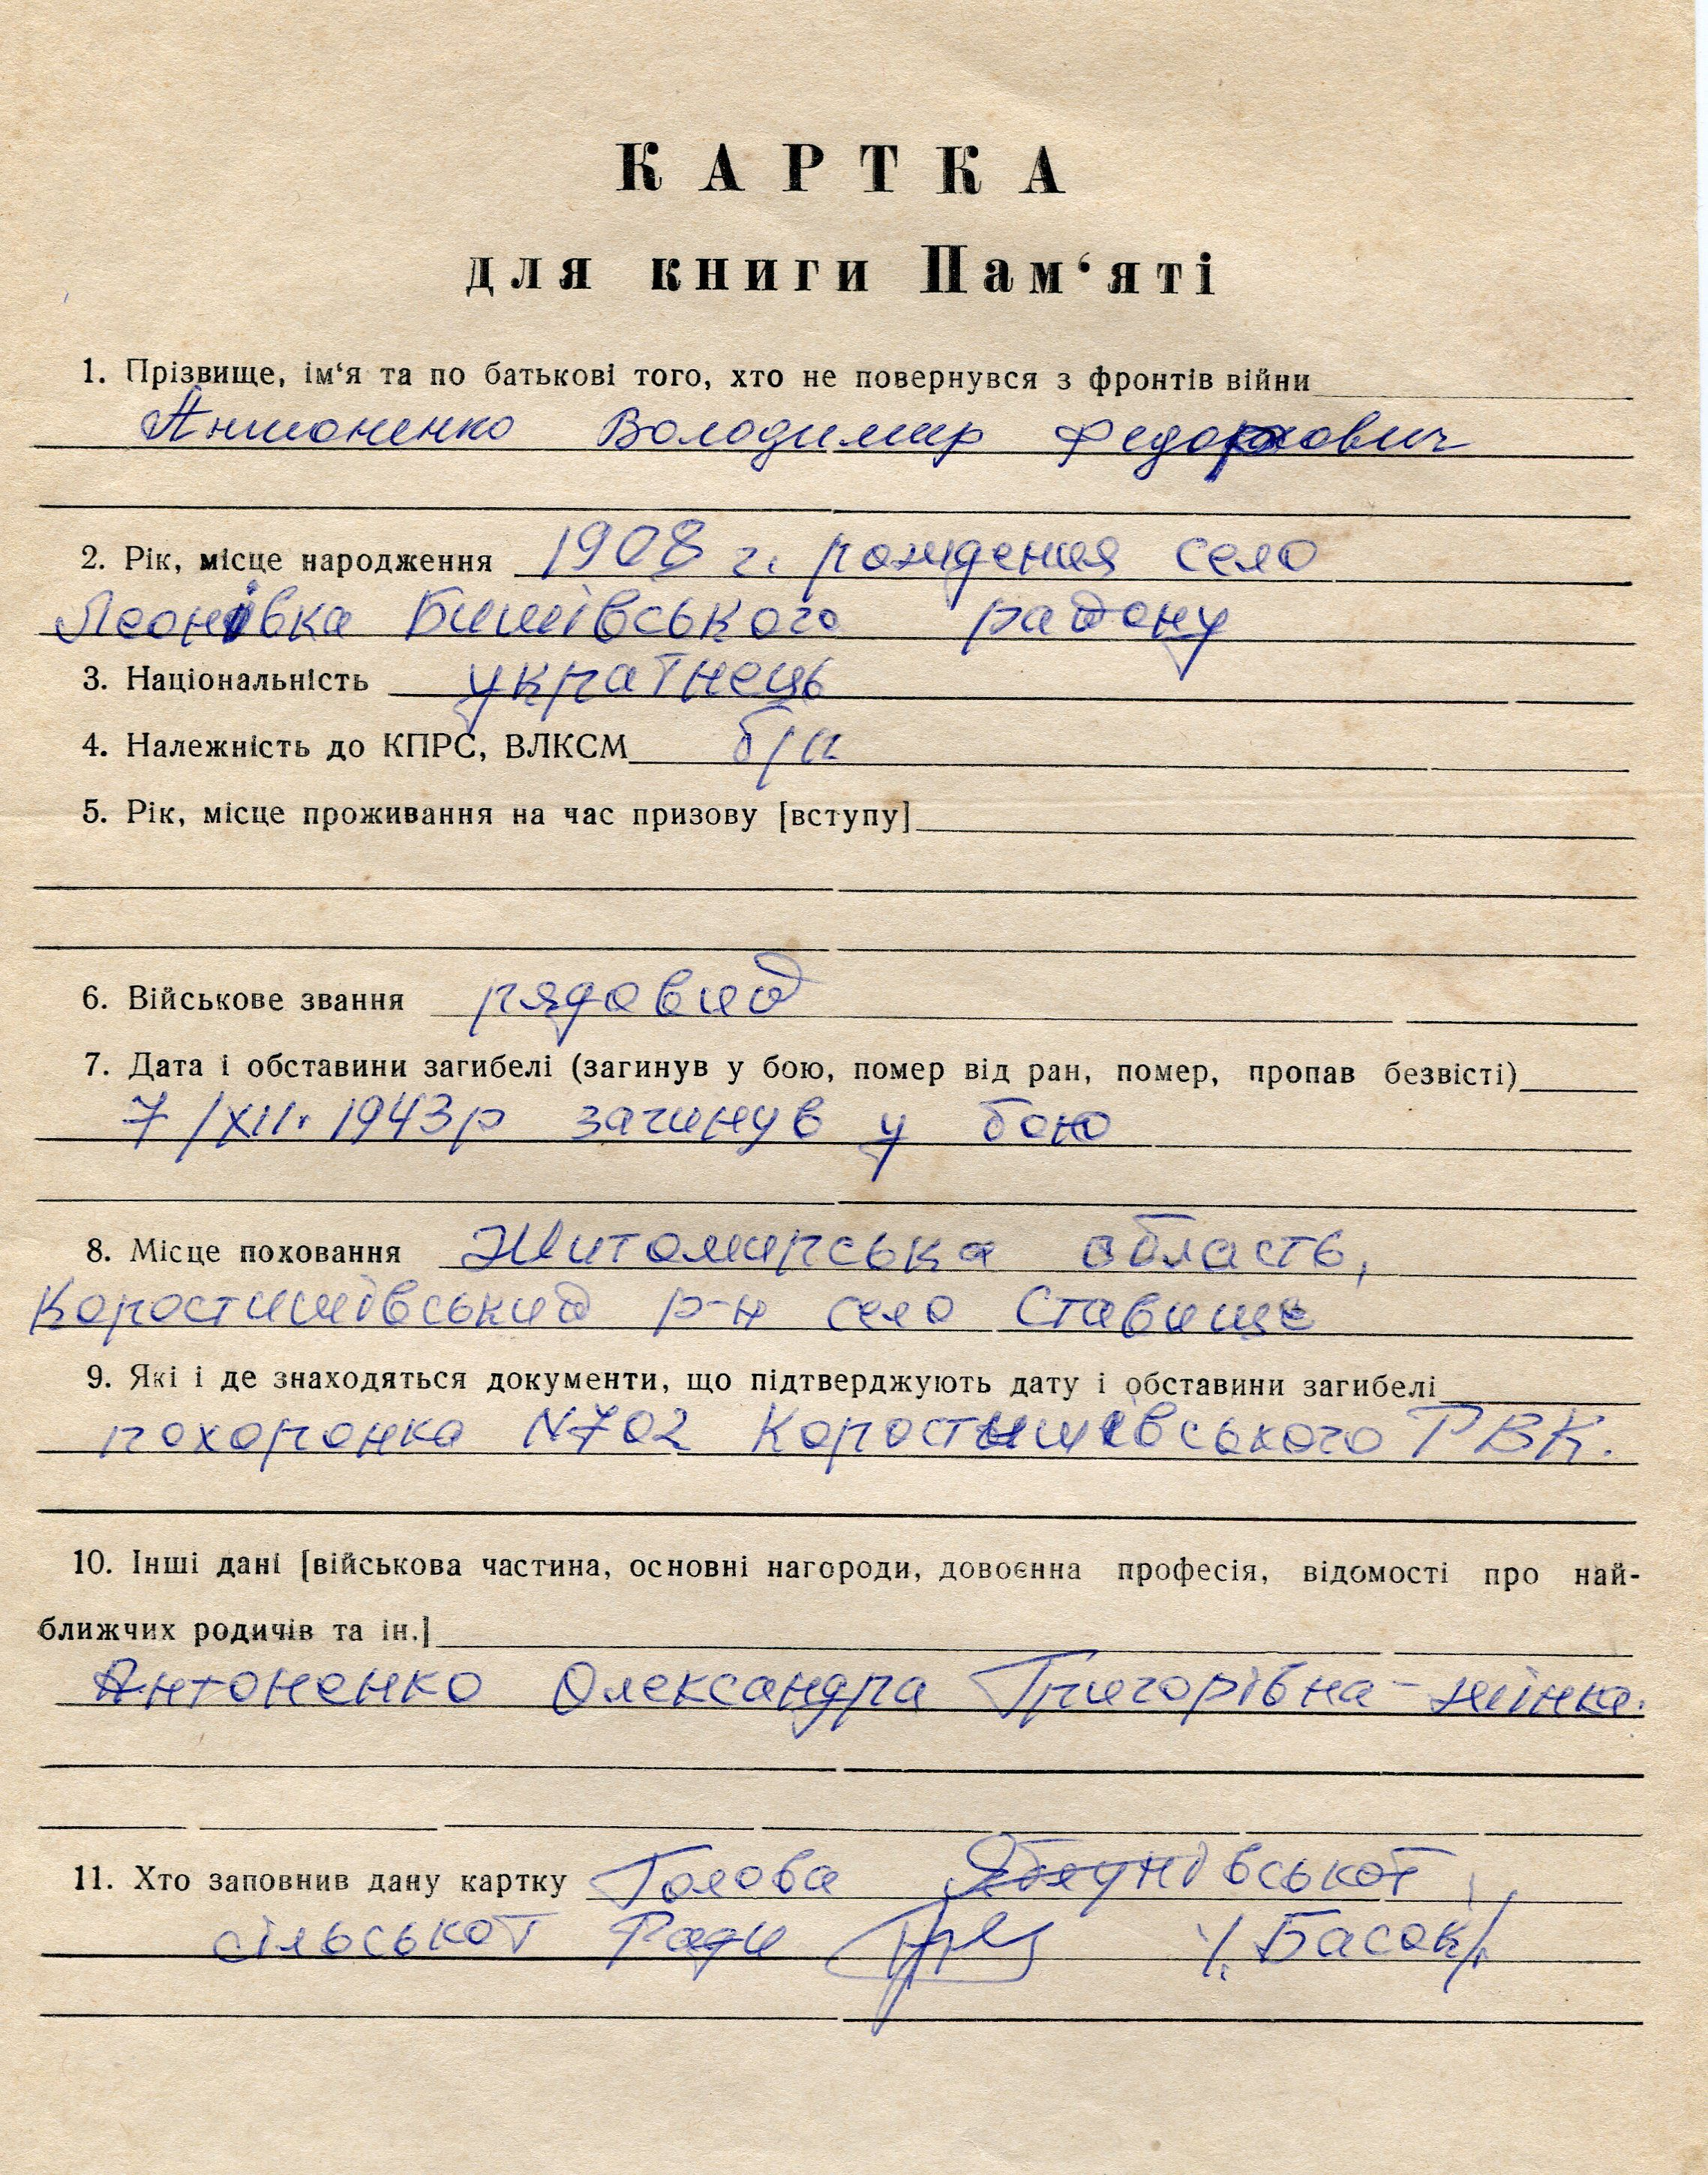 КАРТКА
для книги Пам‘яті
1. Прізвище, ім‘я та по батькові того, хто не повернувся з фронтів війни
Антоненко Володимир Федорович
2. Рік, місце народження 1908 г. рождения село
Леонівка Бишівського району
3. Національність українець
4. Належність до КПРС, ВЛКСМ б/п
5. Рік, місце проживання на час призову [вступу]
6. Військове звання рядовий
7. Дата і обставини загибелі (загинув у бою, помер від ран, помер, пропав безвісті)
7/XII. 1943р загинув у бою
8. Місце поховання Житомирська область,
Коростишівський р-н село Ставище
9. Які і де знаходяться документи, що підтверджують дату і обставини загибелі
похоронка N702 Коростишівського РВК.
10. Інші дані [військова частина, основні нагороди, довоєнна професія, відомості про най-
ближчих родичів та ін.]
Антоненко Олександра Григорівна - жінка.
11. Хто заповнив дану картку Голова Яблунівської
сільської Ради /. Басок/.